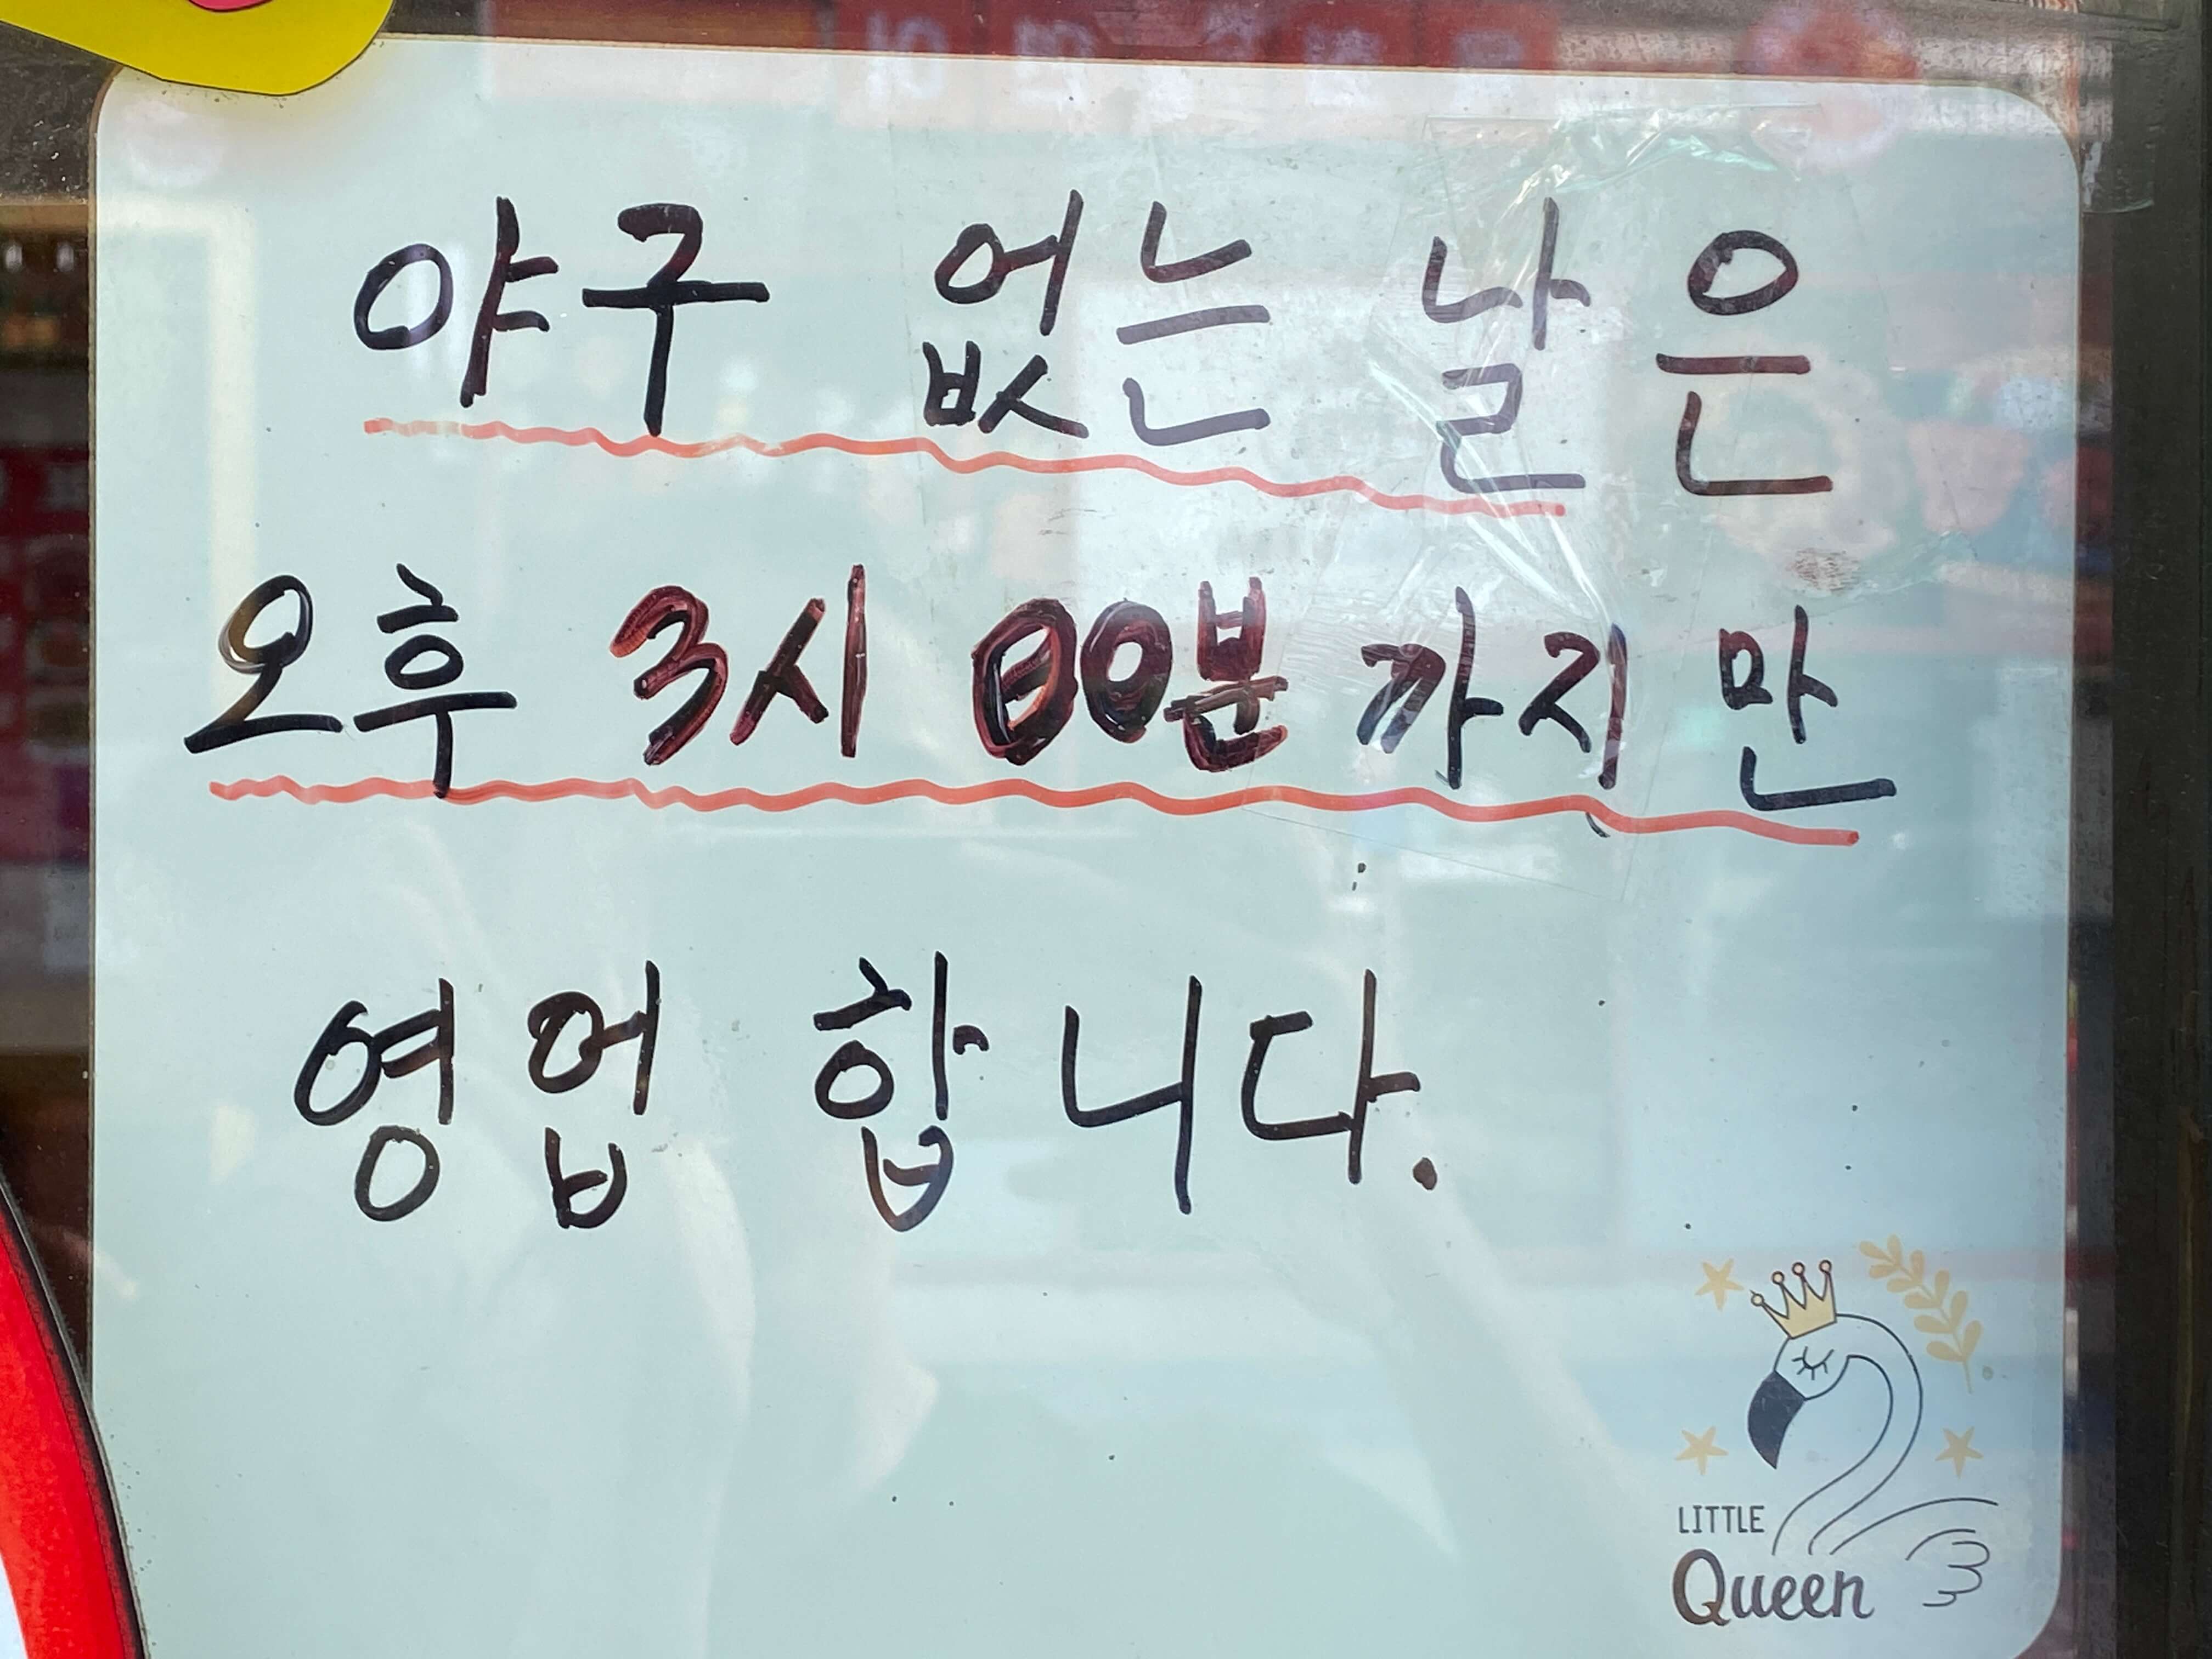 야구 없는 날은
오후 3시 00분 까지만
영업 합니다.
LITTLE
Queen